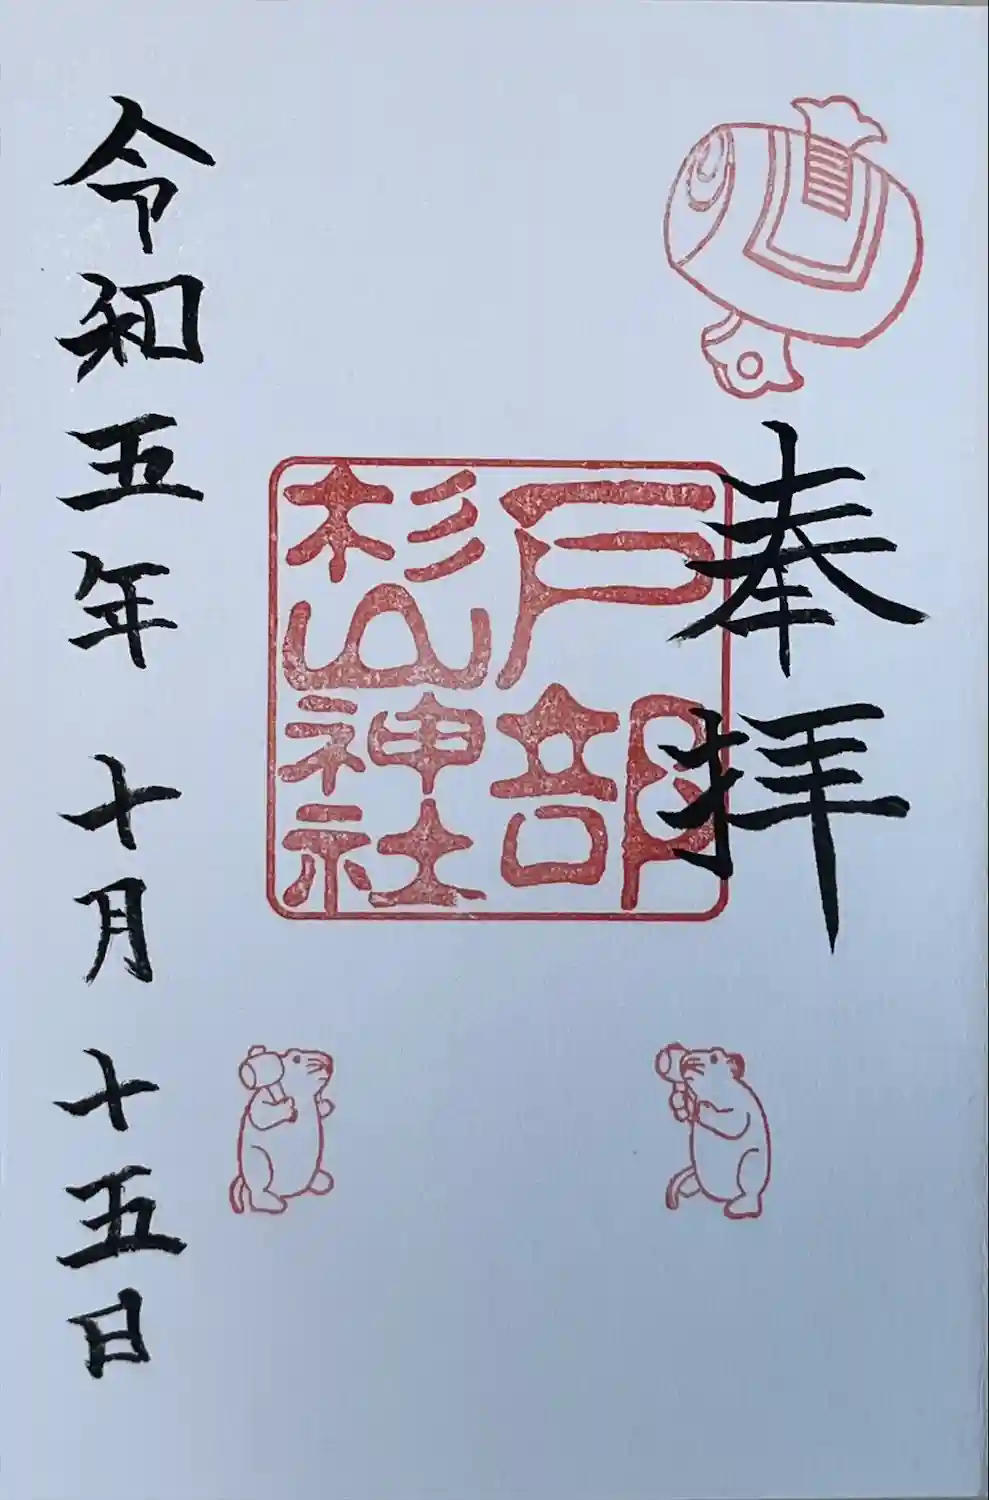 奉拝
戸部
杉山
神社
令和五年 十月 十五日